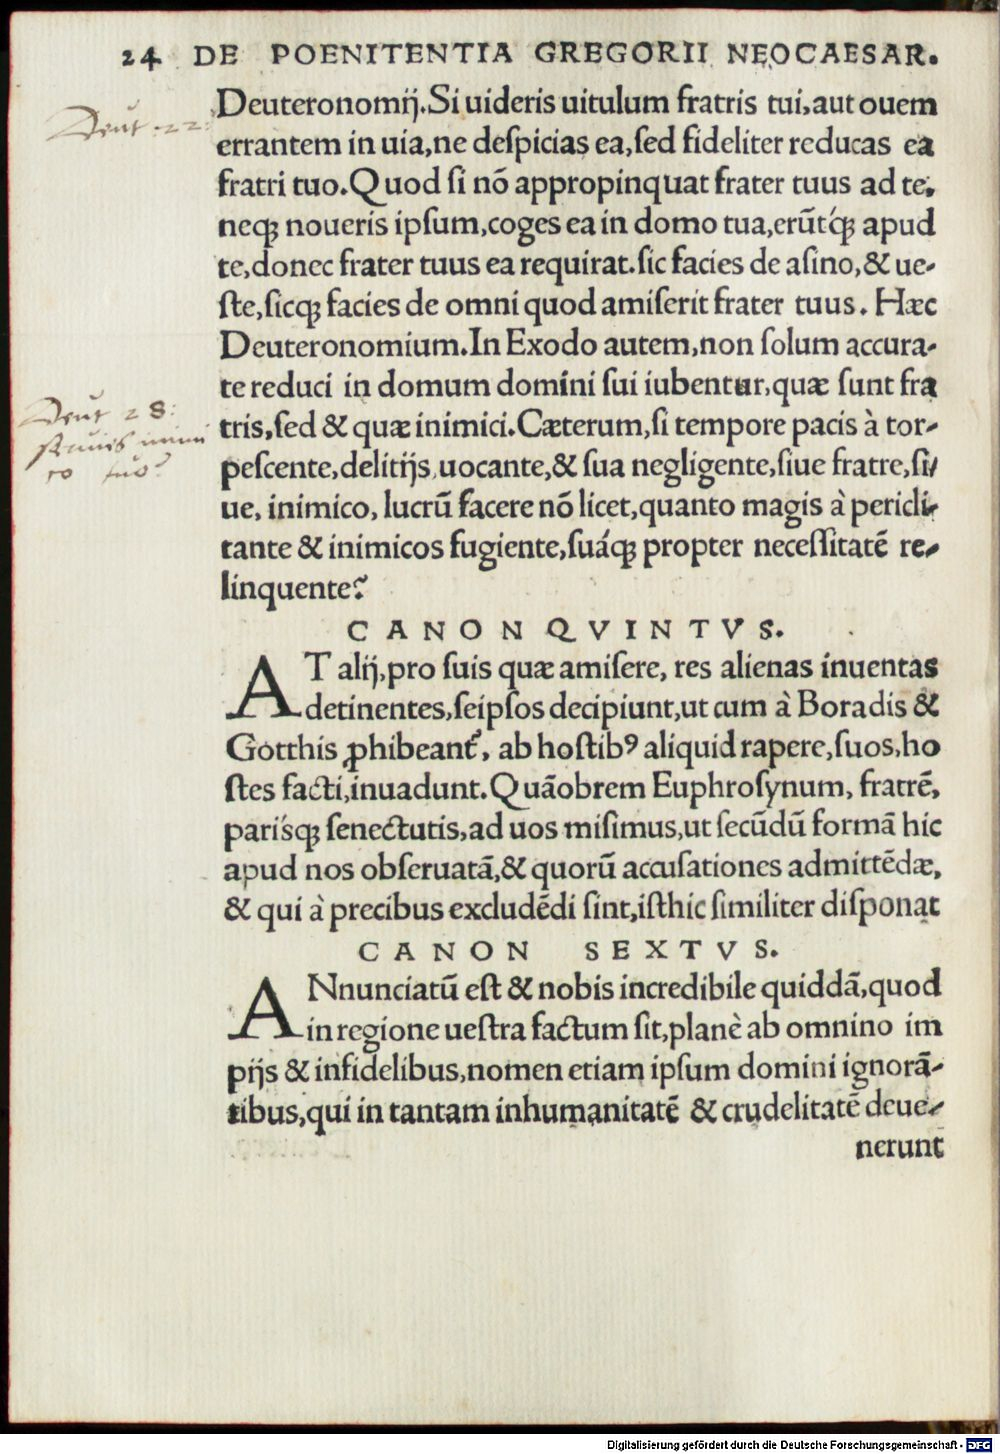 24 DE POENITENTIA GREGORII NEOCAESAR.
Deut. 22:
Deuteronomij. Si uideris uitulum fratris tui, aut ouem
errantem in uia, ne deſpicias ea, ſed fideliter reducas ea
fratri tuo. Quod ſi nõ appropinquat frater tuus ad te,
neqꝫ noueris ipſum, coges ea in domo tua, erũt'qꝫ apud
te, donec frater tuus ea requirat. ſic facies de aſino, & ue-
ſte, ſicqꝫ facies de omni quod amiſerit frater tuus. Hæc
Deuteronomium. In Exodo autem, non ſolum accura-
te reduci in domum domini ſui iubentur, quæ ſunt fra
Deut 28:
tris, ſed & quæ inimici. Cæterum, ſi tempore pacis à tor-
peſcente, delitijs uocante, & ſua negligente, ſiue fratre, ſi/
ue, inimico, lucrũ facere nõ licet, quanto magis à pericli-
tante & inimicos fugiente, ſuáqꝫ propter neceſſitatẽ re-
linquente?
co tuo?
CANON QVINTVS.
AT alij, pro ſuis quæ amiſere, res alienas inuentas
detinentes, ſeipſos decipiunt, ut cum à Boradis &
Gotthis ꝓhibeant᷑, ab hoſtibꝰ aliquid rapere, ſuos, ho
ſtes facti, inuadunt. Quãobrem Euphroſynum, fratrẽ,
pariſ́qꝫ ſenectutis, ad uos miſimus, ut ſecũdũ formã hic
apud nos obſeruatã, & quorũ accuſationes admittẽdæ,
& qui à precibus excludẽdi ſint, iſthic ſimiliter diſponat
CANON SEXTVS.
ANnunciatũ eſt & nobis incredibile quiddã, quod
in regione ueſtra factum ſit, planè ab omnino im
pijs & infidelibus, nomen etiam ipſum domini ignorã-
tibus, qui in tantam inhumanitatẽ & crudelitatẽ deue-
nerunt
Digitalisierung gefördert durch die Deutsche Forschungsgemeinschaft - DFG